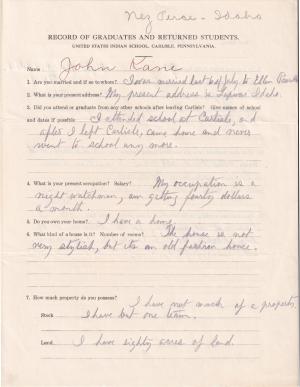 Nez Perce - Idaho
RECORD OF GRADUATES AND RETURNED STUDENTS.
UNITED STATES INDIAN SCHOOL, CARLISLE, PENNSYLVANIA.
Name John Kane
1. Are you married and if so to whom? I was married last of July to Ellen
2. What is your present address? My present address is Lapwai Idaho.
3. Did you attend or graduate from any other schools after leaving Carlisle? Give names of school
and dates if possible I attended school at Carlisle, and
after I left Carlisle, came home and never
went to school any more.
4. What is your present occupation? Salary? My occupation is a
night watchman, am getting fourty dollars
a month.
5. Do you own your home? I have a home.
6. What kind of a house is it? Number of rooms? The house is not
very stylish, but its an old fashion house.
7. How much property do you possess?
I have not much of a property.
Stock I have but one team.
Land I have eighty acres of land.